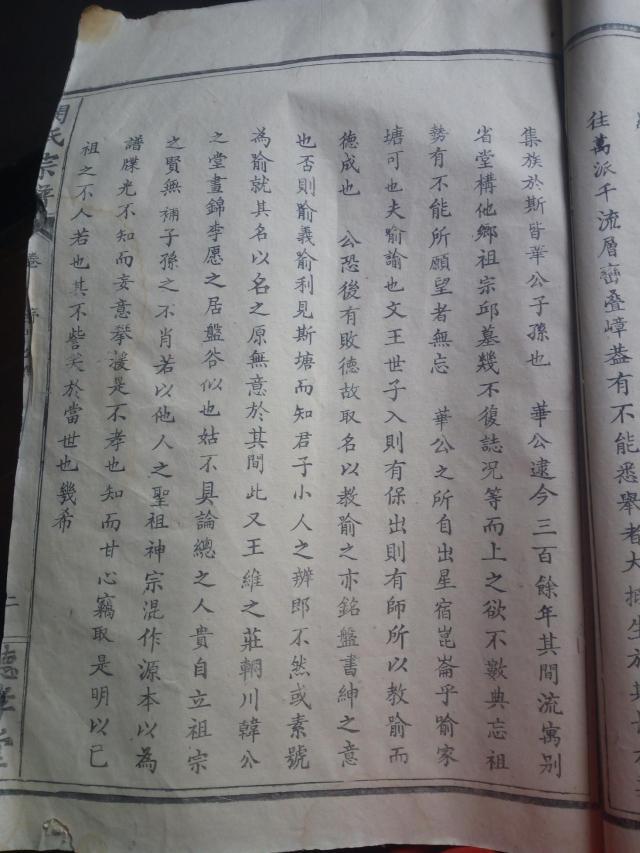 往萬派千流層巒叠嶂蓋有不能悉舉者大
集族於斯皆華公子孫也 華公逮今三百餘年其間流寓別
省堂構他鄉祖宗邱墓幾不復誌況等而上之欲不數典忘祖
勢有不能所願望者無忘 華公之所自出星宿崑崙乎喻家
塘可也夫喻諭也文王世子入則有保出則有師所以教喻而
德成也 公恐後有敗德故取名以教喻之亦銘盤書紳之意
也否則喻義喻利見斯塘而知君子小人之辨即不然或素號
為喻就其名以名之原無意於其間此又王維之莊輞川韓公
之堂晝錦李愿之居盤谷似也姑不具論總之人貴自立祖宗
之賢無補子孫之不肖若以他人之聖祖神宗混作源本以為
譜牒光不知而妄意攀援是不孝也知而甘心竊取是明以已
祖之不人若也其不訾笑於當世也幾希
氏宗
卷
二
德
堂